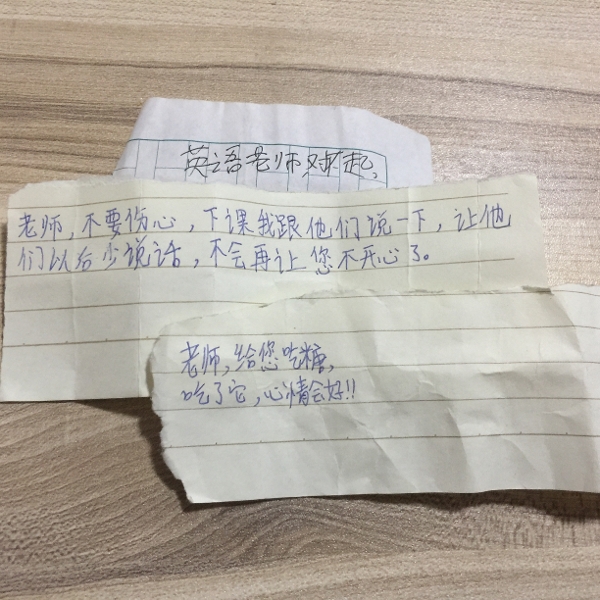 英语老师对不起,
老师,不要伤心,下课我跟他们说一下,让他
们以后少说话,不会再让您不开心了。
老师,给您吃糖,
吃了它,心情会好!!